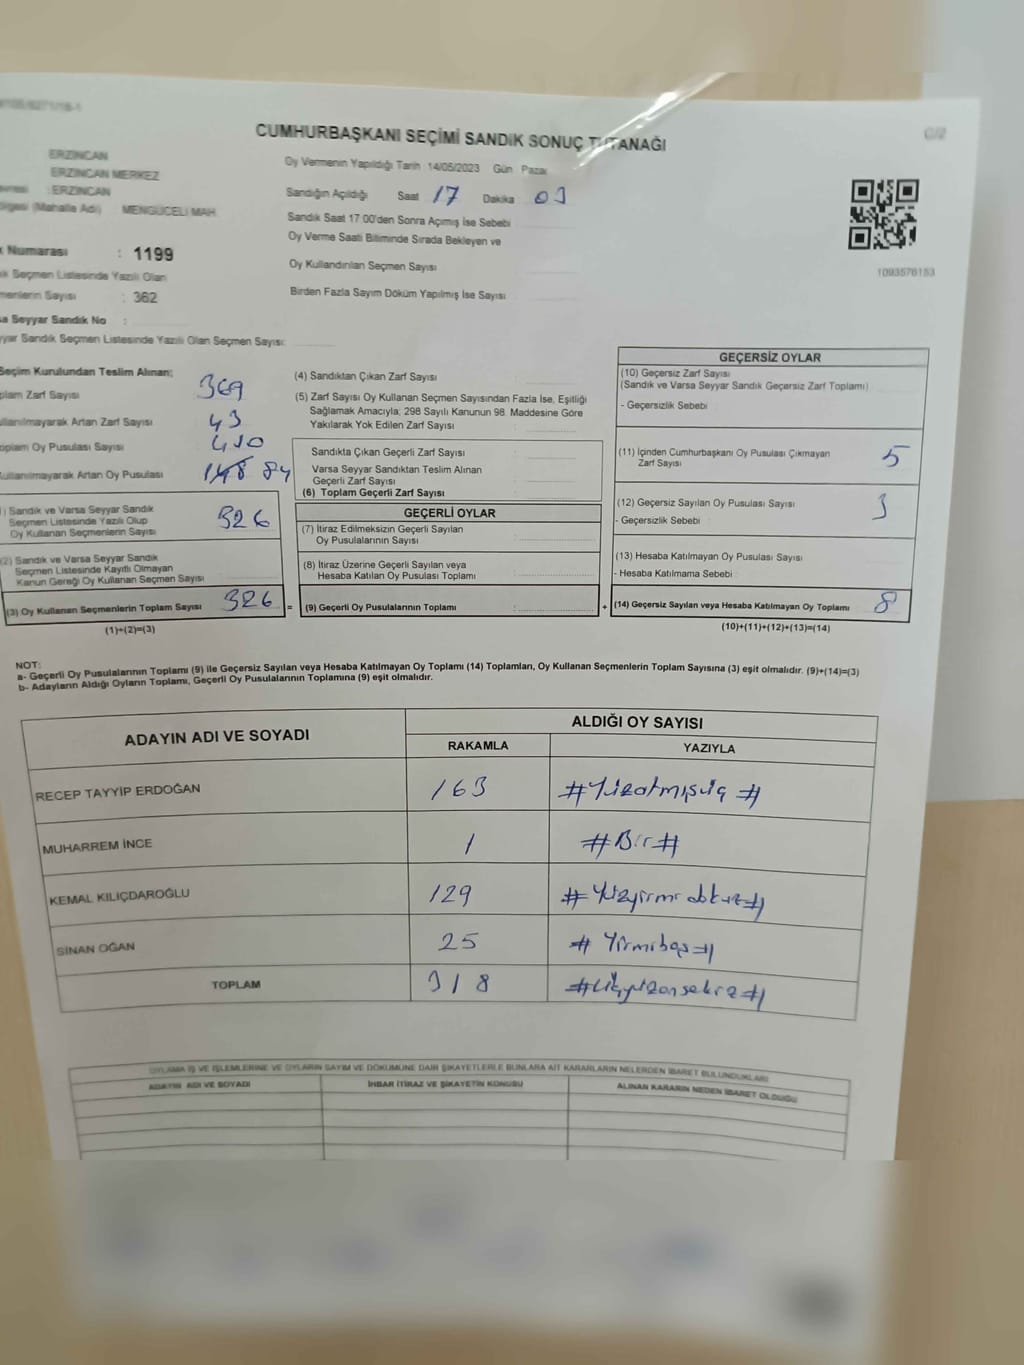 CUMHURBAŞKANI SEÇİMİ SANDIK SONUÇ TUTANAĞI
C/2
ERZİNCAN
ERZİNCAN MERKEZ
: ERZİNCAN
(Mahalle Adı) MENGÜCELİ MAH.
Numarası : 1199
Seçmen Listesinde Yazılı Olan
Sayısı : 362
Seyyar Sandık No :
Sandık Seçmen Listesinde Yazılı Olan Seçmen Sayısı:
Oy Vermenin Yapıldığı Tarih 14/05/2023 Gün Pazar
Sandığın Açıldığı Saat 17 Dakika 03
Sandık Saat 17:00'den Sonra Açımış İse Sebebi
Oy Verme Saati Bitiminde Sırada Bekleyen ve
Oy Kullandırılan Seçmen Sayısı
Birden Fazla Sayım Döküm Yapılmış İse Sayısı
1093576153
Seçim Kurulundan Teslim Alınan;
Zarf Sayısı 369
Artan Zarf Sayısı 43
Oy Pusulası Sayısı 410
Artan Oy Pusulası 84
) Sandık ve Varsa Seyyar Sandık
Seçmen Listesinde Yazılı Olup
Oy Kullanan Seçmenlerin Sayısı 326
(2) Sandık ve Varsa Seyyar Sandık
Seçmen Listesinde Kayıtlı Olmayan
Kanun Gereği Oy Kullanan Seçmen Sayısı
(3) Oy Kullanan Seçmenlerin Toplam Sayısı 326 =
(1)+(2)=(3)
(4) Sandıktan Çıkan Zarf Sayısı :
(5) Zarf Sayısı Oy Kullanan Seçmen Sayısından Fazla İse, Eşitliği
Sağlamak Amacıyla; 298 Sayılı Kanunun 98. Maddesine Göre
Yakılarak Yok Edilen Zarf Sayısı :
Sandıkta Çıkan Geçerli Zarf Sayısı :
Varsa Seyyar Sandıktan Teslim Alınan
Geçerli Zarf Sayısı :
(6) Toplam Geçerli Zarf Sayısı :
GEÇERLİ OYLAR
(7) İtiraz Edilmeksizin Geçerli Sayılan
Oy Pusulalarının Sayısı :
(8) İtiraz Üzerine Geçerli Sayılan veya
Hesaba Katılan Oy Pusulası Toplamı :
(9) Geçerli Oy Pusulalarının Toplamı : +
GEÇERSİZ OYLAR
(10) Geçersiz Zarf Sayısı
(Sandık ve Varsa Seyyar Sandık Geçersiz Zarf Toplamı)
- Geçersizlik Sebebi
(11) İçinden Cumhurbaşkanı Oy Pusulası Çıkmayan
Zarf Sayısı 5
(12) Geçersiz Sayılan Oy Pusulası Sayısı 3
- Geçersizlik Sebebi
(13) Hesaba Katılmayan Oy Pusulası Sayısı
- Hesaba Katılmama Sebebi
(14) Geçersiz Sayılan veya Hesaba Katılmayan Oy Toplamı 8
(10)+(11)+(12)+(13)=(14)
NOT:
a- Geçerli Oy Pusulalarının Toplamı (9) ile Geçersiz Sayılan veya Hesaba Katılmayan Oy Toplamı (14) Toplamları, Oy Kullanan Seçmenlerin Toplam Sayısına (3) eşit olmalıdır. (9)+(14)=(3)
b- Adayların Aldığı Oyların Toplamı, Geçerli Oy Pusulalarının Toplamına (9) eşit olmalıdır.
ADAYIN ADI VE SOYADI ALDIĞI OY SAYISI
RAKAMLA YAZIYLA
RECEP TAYYİP ERDOĞAN 163 #Yüzatmışüç#
MUHARREM İNCE 1 #Bir#
KEMAL KILIÇDAROĞLU 129 #Yüzyirmi dokuz#
SİNAN OĞAN 25 # Yirmibeş#
TOPLAM 318 #Üçyüzonsekiz#
OYLAMA İŞ VE İŞLEMLERİNE VE OYLARIN SAYIM VE DÖKÜMÜNE DAİR ŞİKAYETLERLE BUNLARA AİT KARARLARIN NELERDEN İBARET BULUNDUKLARI
ADAYIN ADI VE SOYADI İHBAR İTİRAZ VE ŞİKAYETİN KONUSU ALINAN KARARIN NEDEN İBARET OLDUĞU